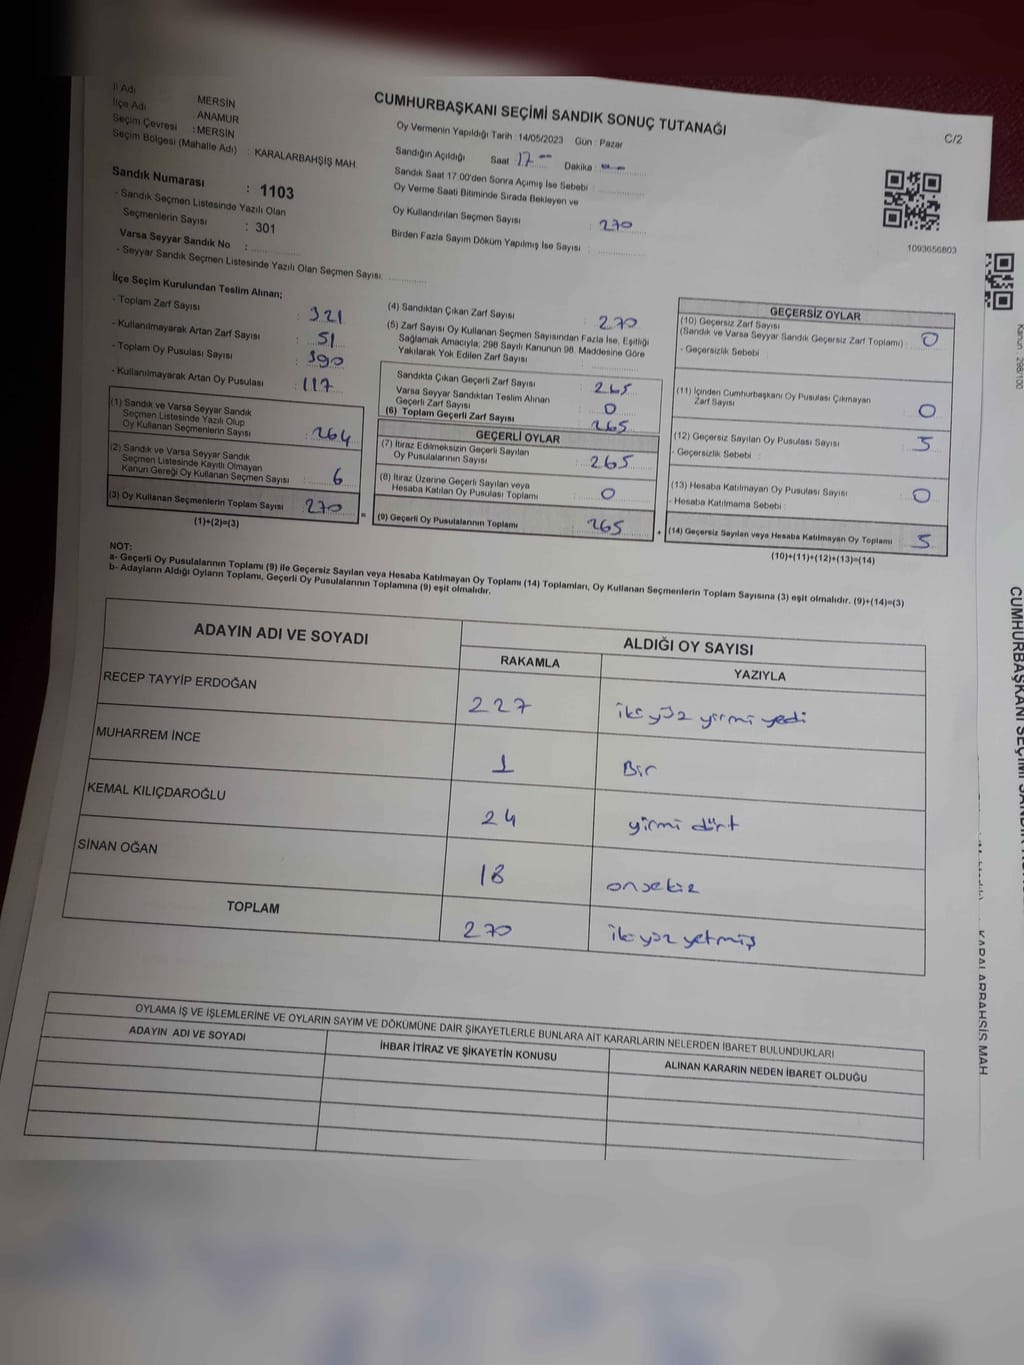 İl Adı MERSİN
İlçe Adı ANAMUR
Seçim Çevresi : MERSİN
Seçim Bölgesi (Mahalle Adı) : KARALARBAHŞİŞ MAH.
CUMHURBAŞKANI SEÇİMİ SANDIK SONUÇ TUTANAĞI
C/2
Oy Vermenin Yapıldığı Tarih : 14/05/2023 Gün : Pazar
Sandığın Açıldığı Saat 17 Dakika
Sandık Saat 17:00'den Sonra Açımış İse Sebebi :
Oy Verme Saati Bitiminde Sırada Bekleyen ve
Oy Kullandırılan Seçmen Sayısı : 270
Birden Fazla Sayım Döküm Yapılmış İse Sayısı :
1093656803
Sandık Numarası : 1103
- Sandık Seçmen Listesinde Yazılı Olan
Seçmenlerin Sayısı : 301
Varsa Seyyar Sandık No :
- Seyyar Sandık Seçmen Listesinde Yazılı Olan Seçmen Sayısı:
İlçe Seçim Kurulundan Teslim Alınan;
- Toplam Zarf Sayısı : 321
- Kullanılmayarak Artan Zarf Sayısı : 51
- Toplam Oy Pusulası Sayısı : 390
- Kullanılmayarak Artan Oy Pusulası : 117
(1) Sandık ve Varsa Seyyar Sandık
Seçmen Listesinde Yazılı Olup
Oy Kullanan Seçmenlerin Sayısı : 264
(2) Sandık ve Varsa Seyyar Sandık
Seçmen Listesinde Kayıtlı Olmayan
Kanun Gereği Oy Kullanan Seçmen Sayısı : 6
(3) Oy Kullanan Seçmenlerin Toplam Sayısı : 270
(1)+(2)=(3)
=
(4) Sandıktan Çıkan Zarf Sayısı : 270
(5) Zarf Sayısı Oy Kullanan Seçmen Sayısından Fazla İse, Eşitliği
Sağlamak Amacıyla; 298 Sayılı Kanunun 98. Maddesine Göre
Yakılarak Yok Edilen Zarf Sayısı :
Sandıkta Çıkan Geçerli Zarf Sayısı : 265
Varsa Seyyar Sandıktan Teslim Alınan
Geçerli Zarf Sayısı : 0
(6) Toplam Geçerli Zarf Sayısı : 265
GEÇERLİ OYLAR
(7) İtiraz Edilmeksizin Geçerli Sayılan
Oy Pusulalarının Sayısı : 265
(8) İtiraz Üzerine Geçerli Sayılan veya
Hesaba Katılan Oy Pusulası Toplamı : 0
(9) Geçerli Oy Pusulalarının Toplamı : 265
+
GEÇERSİZ OYLAR
(10) Geçersiz Zarf Sayısı
(Sandık ve Varsa Seyyar Sandık Geçersiz Zarf Toplamı) : 0
- Geçersizlik Sebebi :
(11) İçinden Cumhurbaşkanı Oy Pusulası Çıkmayan
Zarf Sayısı : 0
(12) Geçersiz Sayılan Oy Pusulası Sayısı : 5
- Geçersizlik Sebebi :
(13) Hesaba Katılmayan Oy Pusulası Sayısı : 0
- Hesaba Katılmama Sebebi :
(14) Geçersiz Sayılan veya Hesaba Katılmayan Oy Toplamı : 5
(10)+(11)+(12)+(13)=(14)
NOT:
a- Geçerli Oy Pusulasının Toplamı (9) ile Geçersiz Sayılan veya Hesaba Katılmayan Oy Toplamı (14) Toplamları, Oy Kullanan Seçmenlerin Toplam Sayısına (3) eşit olmalıdır. (9)+(14)=(3)
b- Adayların Aldığı Oyların Toplamı, Geçerli Oy Pusulalarının Toplamına (9) eşit olmalıdır.
ADAYIN ADI VE SOYADI ALDIĞI OY SAYISI
RAKAMLA YAZIYLA
RECEP TAYYİP ERDOĞAN 227 iki yüz yirmi yedi
MUHARREM İNCE 1 Bir
KEMAL KILIÇDAROĞLU 24 yirmi dört
SİNAN OĞAN 18 onsekiz
TOPLAM 270 ikiyüz yetmiş
OYLAMA İŞ VE İŞLEMLERİNE VE OYLARIN SAYIM VE DÖKÜMÜNE DAİR ŞİKAYETLERLE BUNLARA AİT KARARLARIN NELERDEN İBARET BULUNDUKLARI
ADAYIN ADI VE SOYADI İHBAR İTİRAZ VE ŞİKAYETİN KONUSU ALINAN KARARIN NEDEN İBARET OLDUĞU
Kanun : 298/100
KARALARBAHŞİŞ MAH